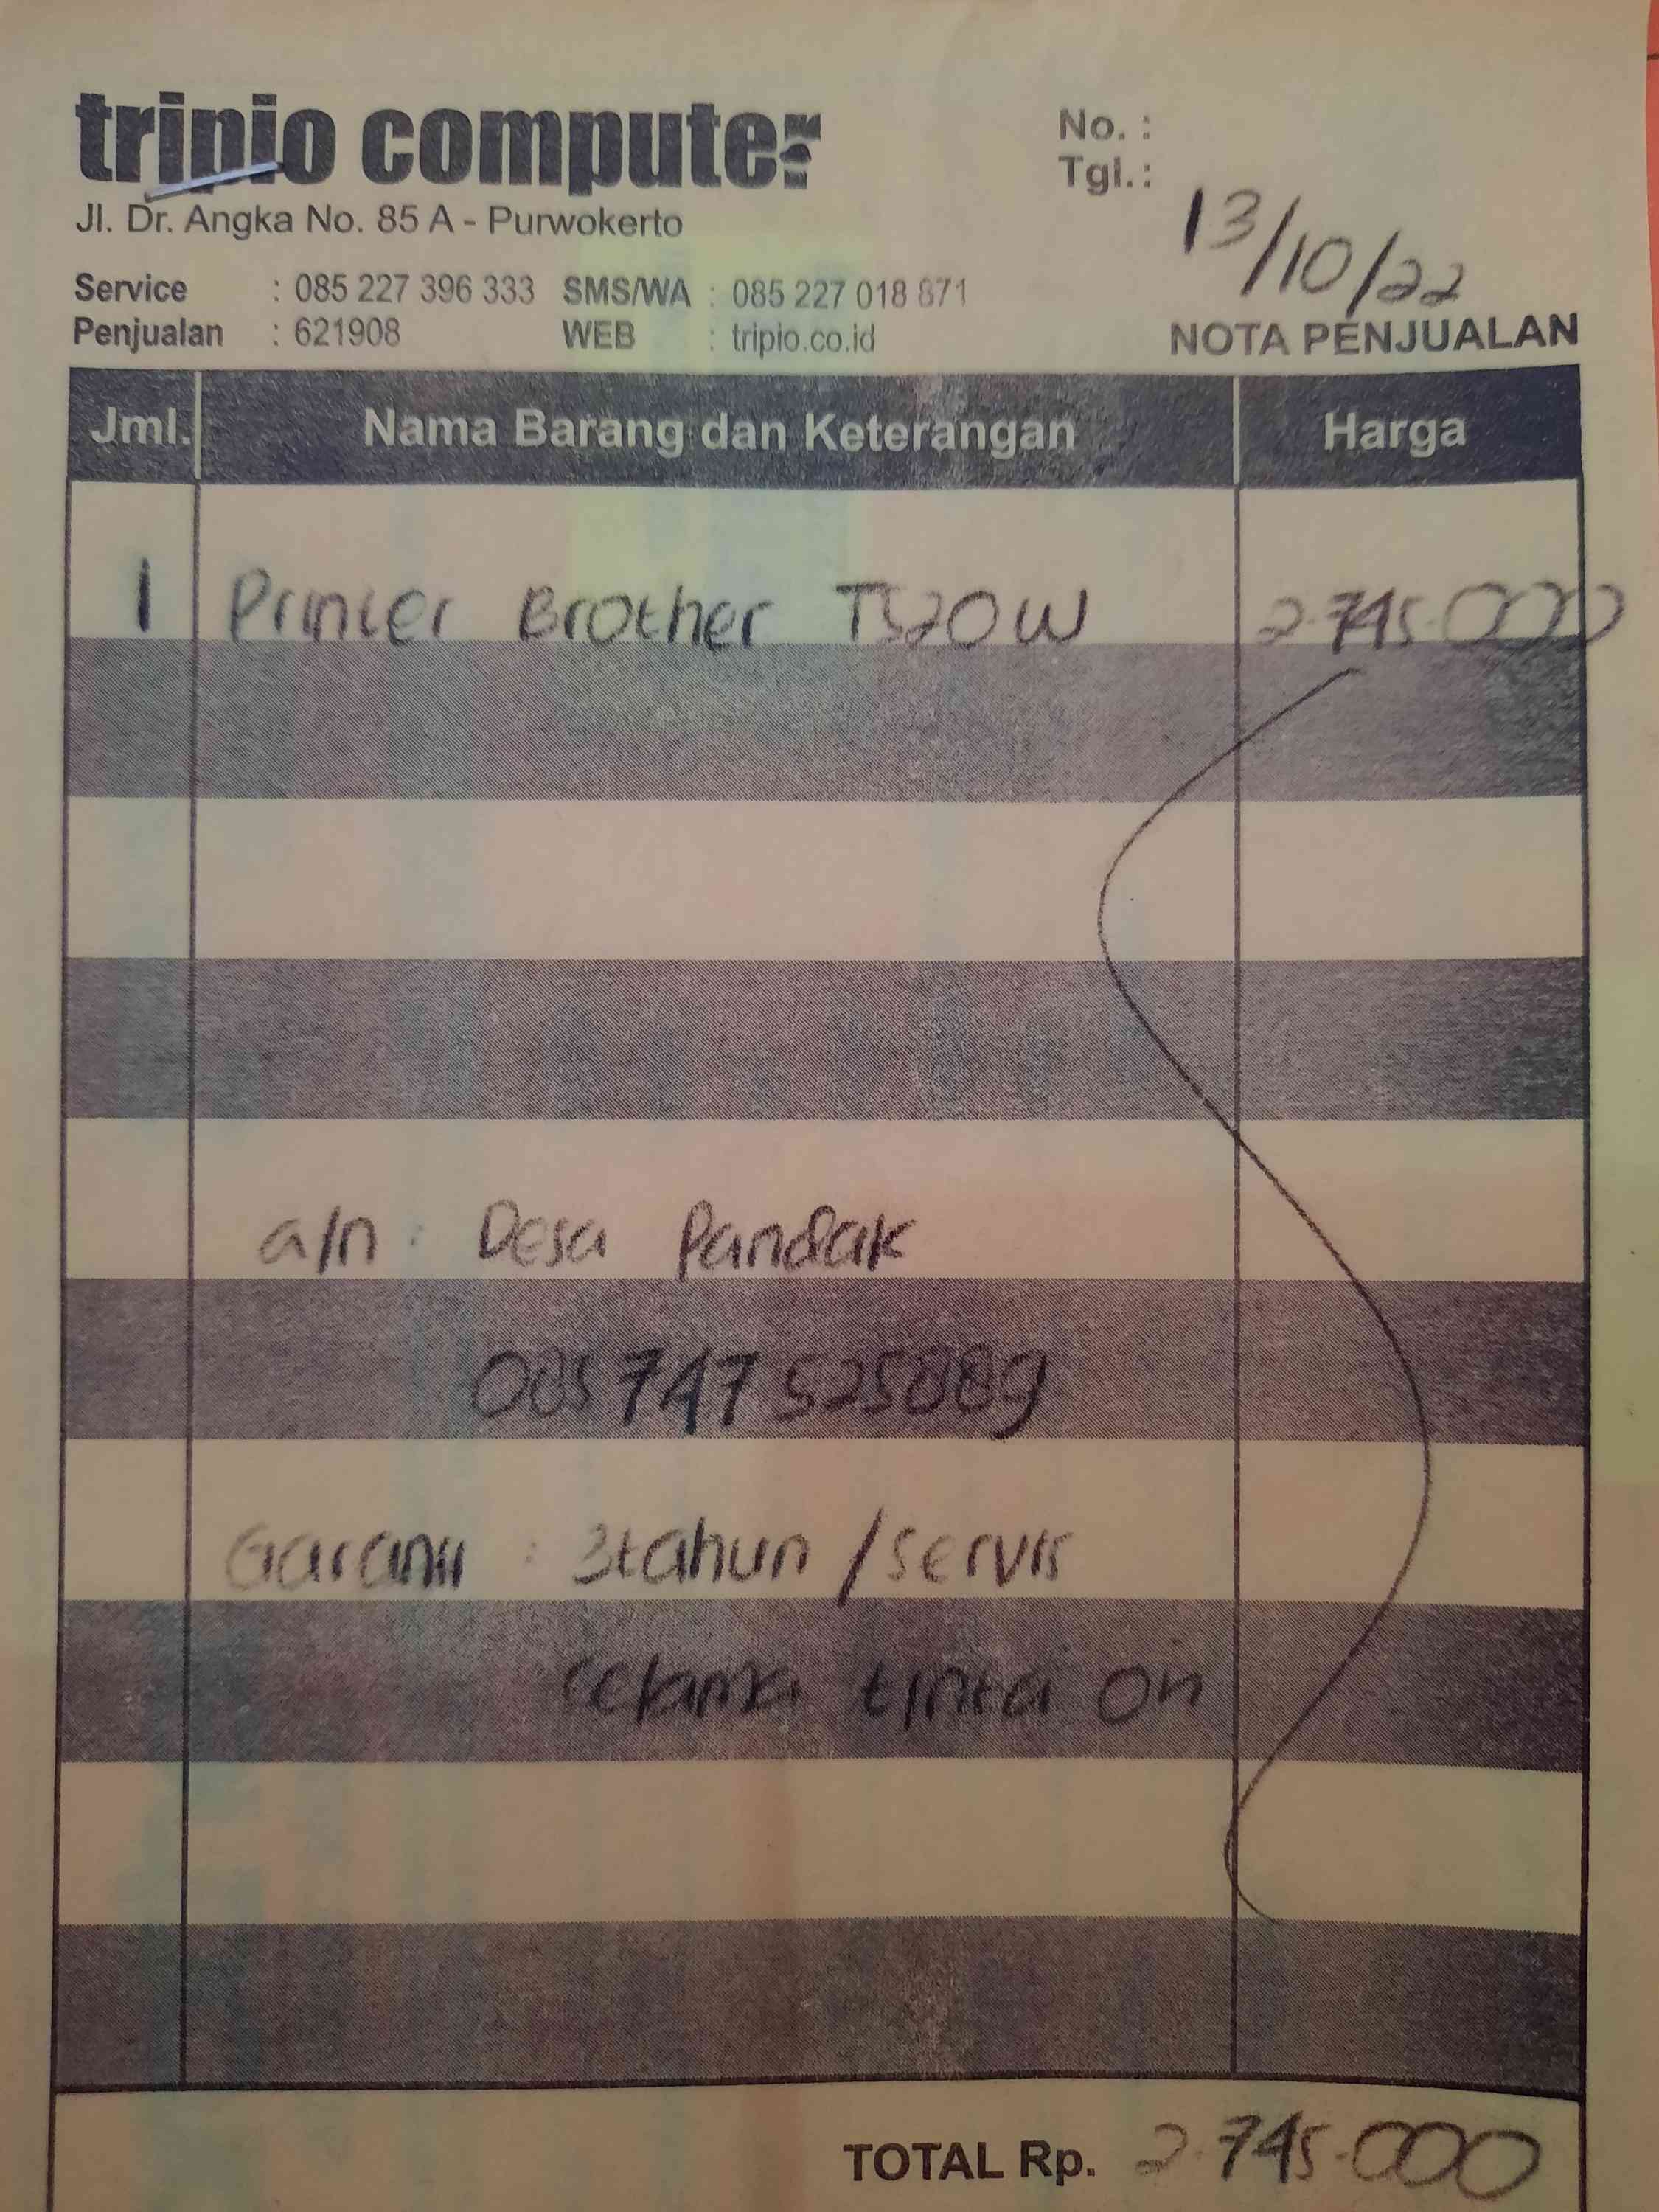 tripio computer
Jl. Dr. Angka No. 85 A - Purwokerto
No. :
Tgl. : 13/10/22
Service : 085 227 396 333 SMS/WA : 085 227 018 871
Penjualan : 621908 WEB : tripio.co.id
NOTA PENJUALAN
Jml. Nama Barang dan Keterangan Harga
1 Printer Brother T520W 2.745.000
a/n : Desa Pandak
085747525889
Garansi : 3 tahun / servis
selama tinta on
TOTAL Rp. 2.745.000